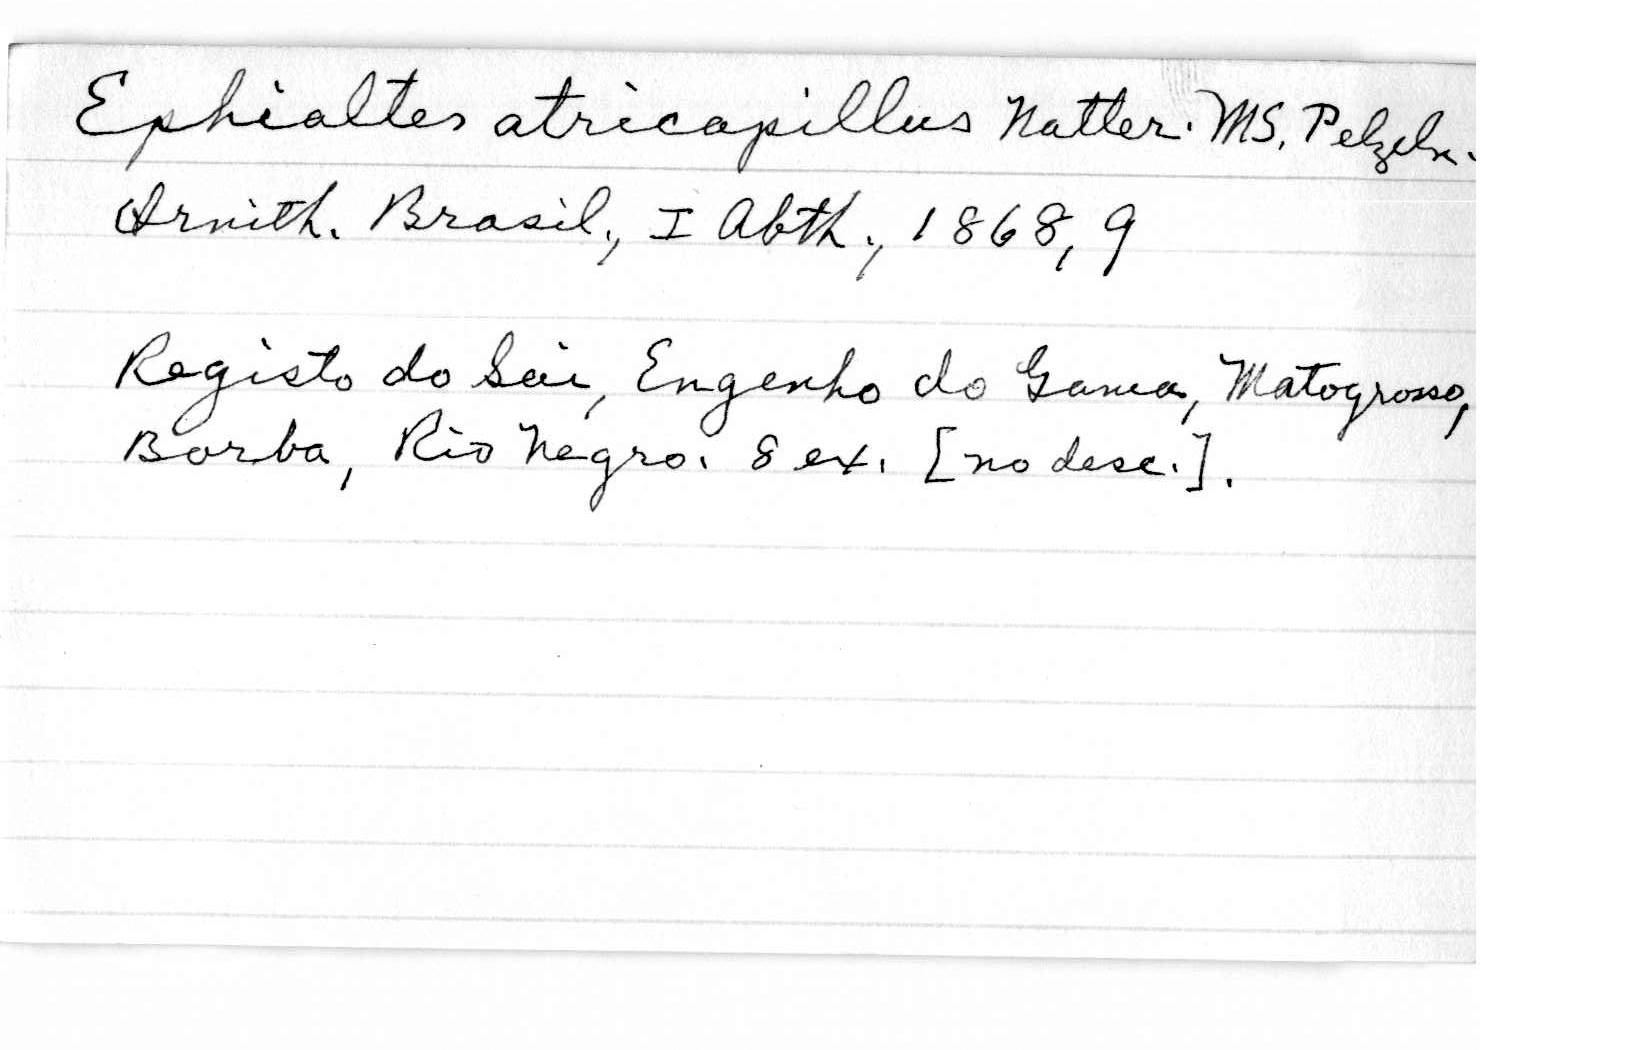 Ephialtes atricapillus Natter. MS, Pelzeln.
Ornith. Brasil., I Abth., 1868, 9
Registo do Sai, Engenho do Gama, Matogrosso,
Borba, Rio Negro. 8 ex. [no desc.].